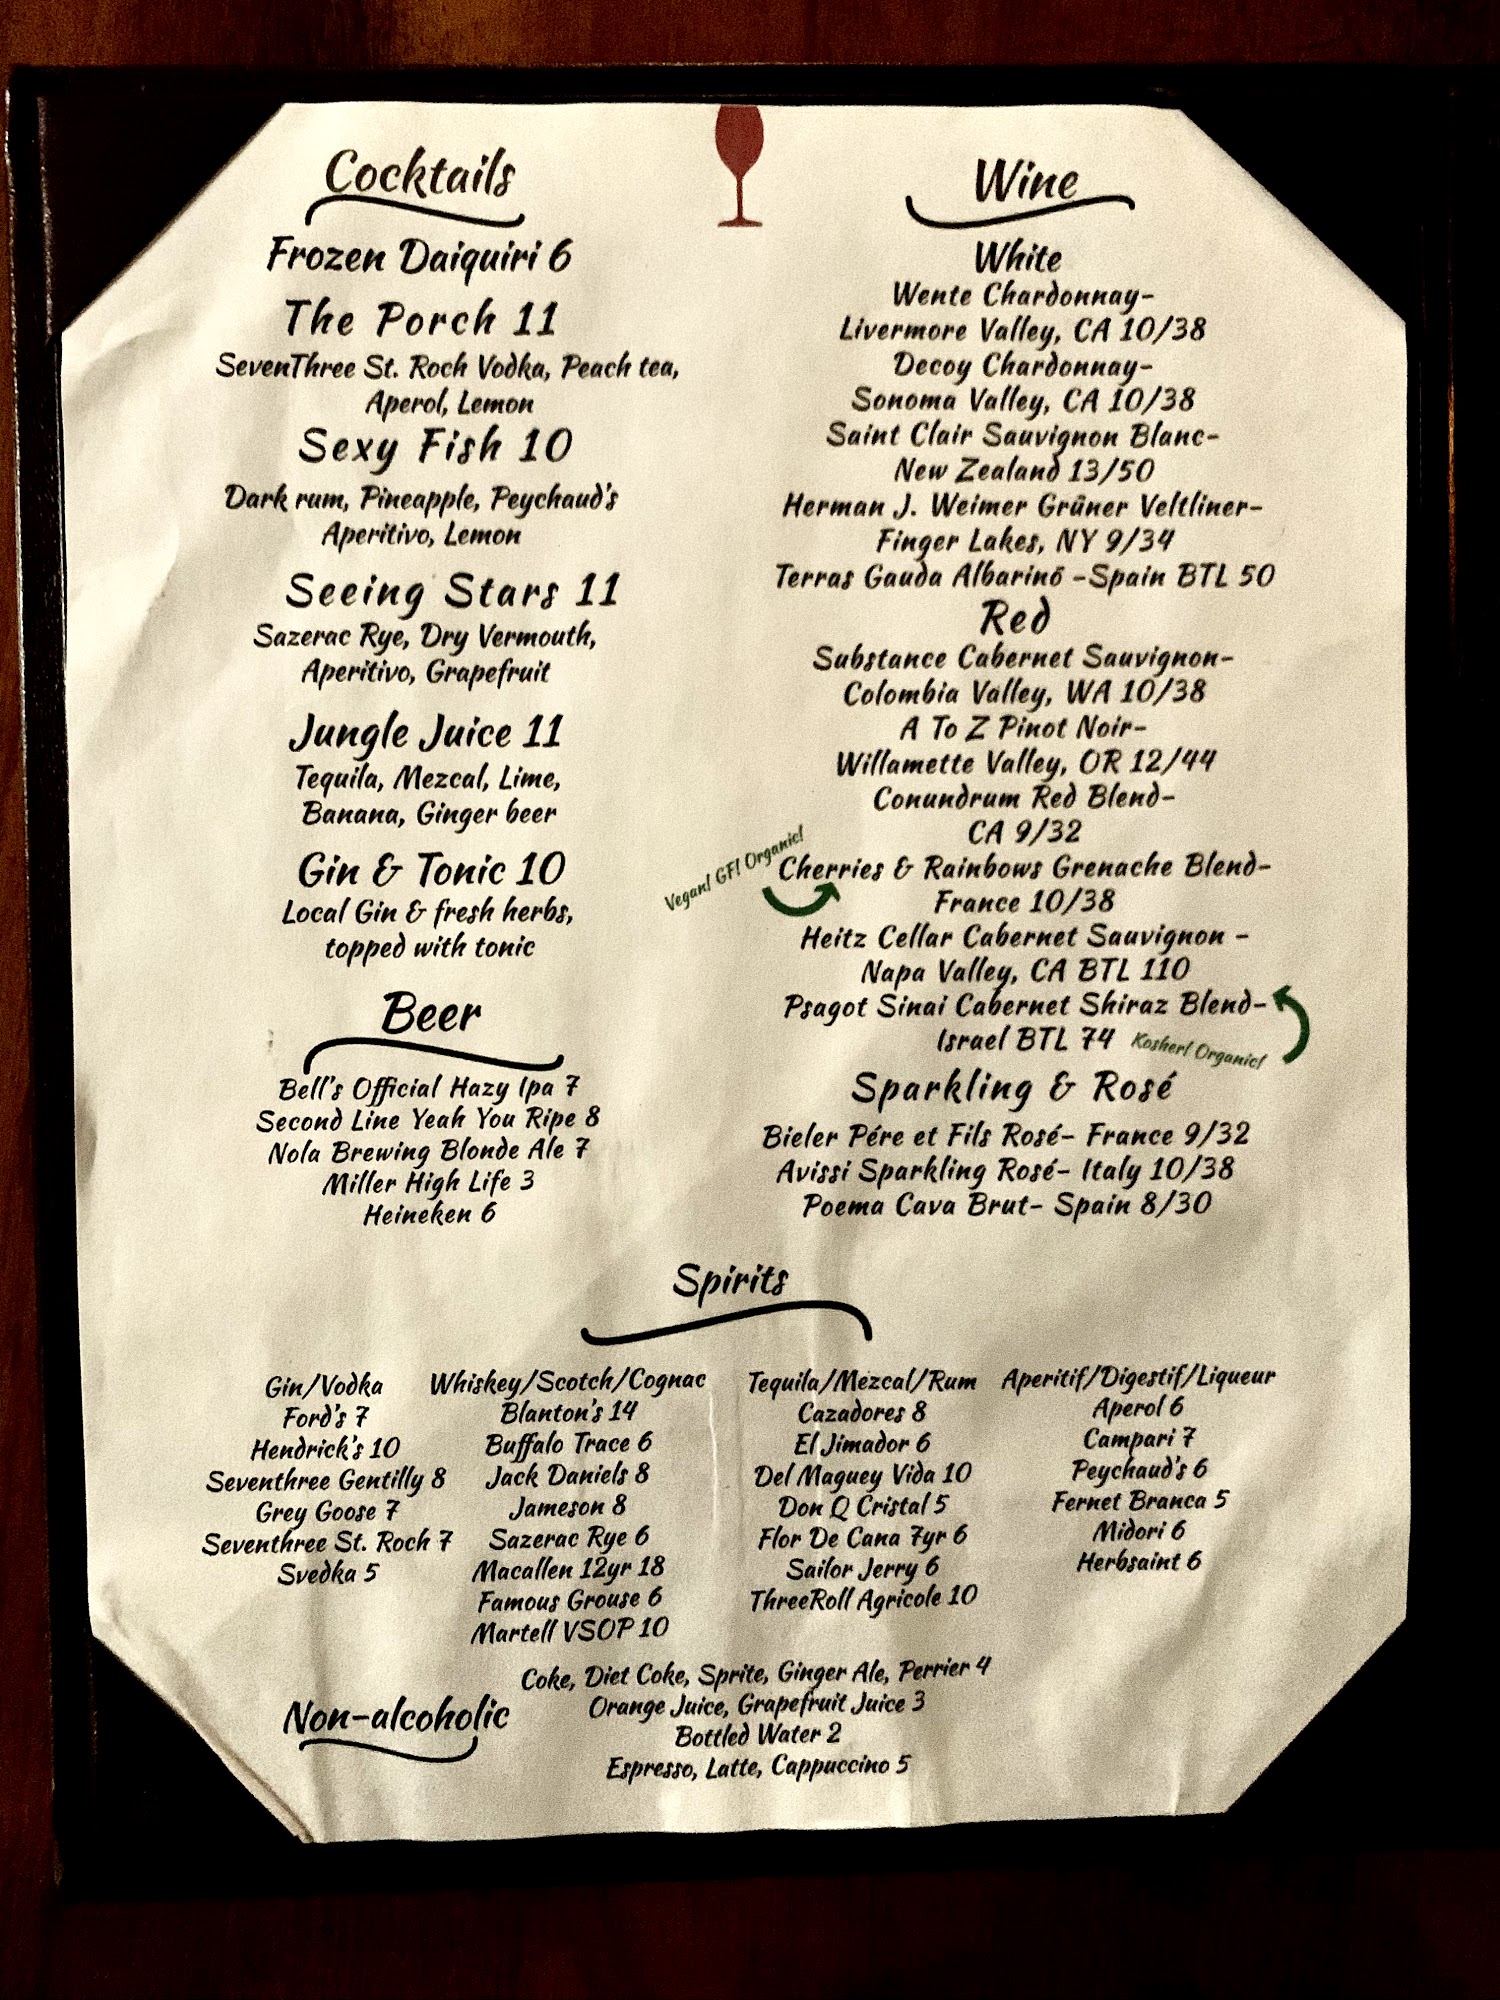 Cocktails
Frozen Daiquiri 6
The Porch 11
SevenThree St. Roch Vodka, Peach tea,
Aperol, Lemon
Sexy Fish 10
Dark rum, Pineapple, Peychaud's
Aperitivo, Lemon
Seeing Stars 11
Sazerac Rye, Dry Vermouth,
Aperitivo, Grapefruit
Jungle Juice 11
Tequila, Mezcal, Lime,
Banana, Ginger beer
Gin & Tonic 10
Local Gin & fresh herbs,
topped with tonic
Beer
Bell's Official Hazy Ipa 7
Second Line Yeah You Ripe 8
Nola Brewing Blonde Ale 7
Miller High Life 3
Heineken 6
Wine
White
Wente Chardonnay-
Livermore Valley, CA 10/38
Decoy Chardonnay-
Sonoma Valley, CA 10/38
Saint Clair Sauvignon Blanc-
New Zealand 13/50
Herman J. Weimer Grüner Veltliner-
Finger Lakes, NY 9/34
Terras Gauda Albarinő -Spain BTL 50
Red
Substance Cabernet Sauvignon-
Colombia Valley, WA 10/38
A To Z Pinot Noir-
Willamette Valley, OR 12/44
Conundrum Red Blend-
CA 9/32
Vegan! GF! Organic!
Cherries & Rainbows Grenache Blend-
France 10/38
Heitz Cellar Cabernet Sauvignon -
Napa Valley, CA BTL 110
Psagot Sinai Cabernet Shiraz Blend-
Israel BTL 74
Kosher! Organic!
Sparkling & Rosé
Bieler Pére et Fils Rosé- France 9/32
Avissi Sparkling Rosé- Italy 10/38
Poema Cava Brut- Spain 8/30
Spirits
Gin/Vodka
Ford's 7
Hendrick's 10
Seventhree Gentilly 8
Grey Goose 7
Seventhree St. Roch 7
Svedka 5
Whiskey/Scotch/Cognac
Blanton's 14
Buffalo Trace 6
Jack Daniels 8
Jameson 8
Sazerac Rye 6
Macallen 12yr 18
Famous Grouse 6
Martell VSOP 10
Tequila/Mezcal/Rum
Cazadores 8
El Jimador 6
Del Maguey Vida 10
Don Q Cristal 5
Flor De Cana 7yr 6
Sailor Jerry 6
ThreeRoll Agricole 10
Aperitif/Digestif/Liqueur
Aperol 6
Campari 7
Peychaud's 6
Fernet Branca 5
Midori 6
Herbsaint 6
Non-alcoholic
Coke, Diet Coke, Sprite, Ginger Ale, Perrier 4
Orange Juice, Grapefruit Juice 3
Bottled Water 2
Espresso, Latte, Cappuccino 5